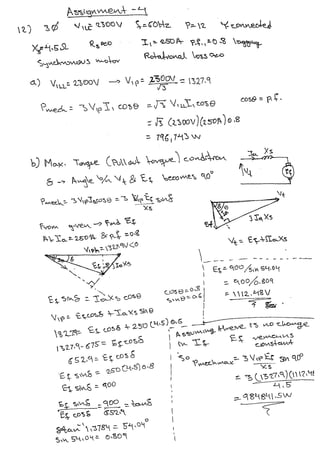 Assignment -4
12) 3Ø V1LL 2300V f=60Hz P=12 Y connected
Xs=4.5Ω Ra≈0 I1=250A p.f.=0.8 lagging
Synchronous motor Rotational loss≈0
a) V1LL=2300V → V1P = 2300V/√3 = 1327.9
Pmech = 3 V1P I1 cosθ = √3 V1LL I1 cosθ cosθ = p.f.
= √3 (2300V)(250A) 0.8
= 796,743 W
b) Max. Torque (Pullout torque) condition
δ → Angle b/n Vt & Ef becomes 90°
Pmech = 3 V1P Ia cosθ = 3 V1P Ef sinδ / Xs
From given → Find Ef
At Ia=250A & p.f.=0.8
V1Ph=1327.9V<0
Ef JIaXs
Ef sinδ = IaXs cosθ
V1P = Ef cosδ + IaXs sinθ
1327.9 = Ef cosδ + 250(4.5)0.6
1327.9-675 = Ef cosδ
652.9 = Ef cosδ
Ef sinδ = 250(4.5)0.8
Ef sinδ = 900
Ef sinδ / Ef cosδ = 900 / 652.9 = tanδ
δtan⁻¹ 1.3784 = 54.04°
sin 54.04 = 0.809
cosθ=0.8
sinθ=0.6
Ia Xs
Vt Ef
Vt
Ef JIaXs
Vt = Ef+IIaXs
Ef = 900/sin 54.04
= 900/0.809
= 1112.48V
Assuming there is no change
in If. Ef remains
constant
So Pmechmax = 3 V1P Ef sin 90° / Xs
= 3(1327.9)(1112.48) / 4.5
= 984841.5W